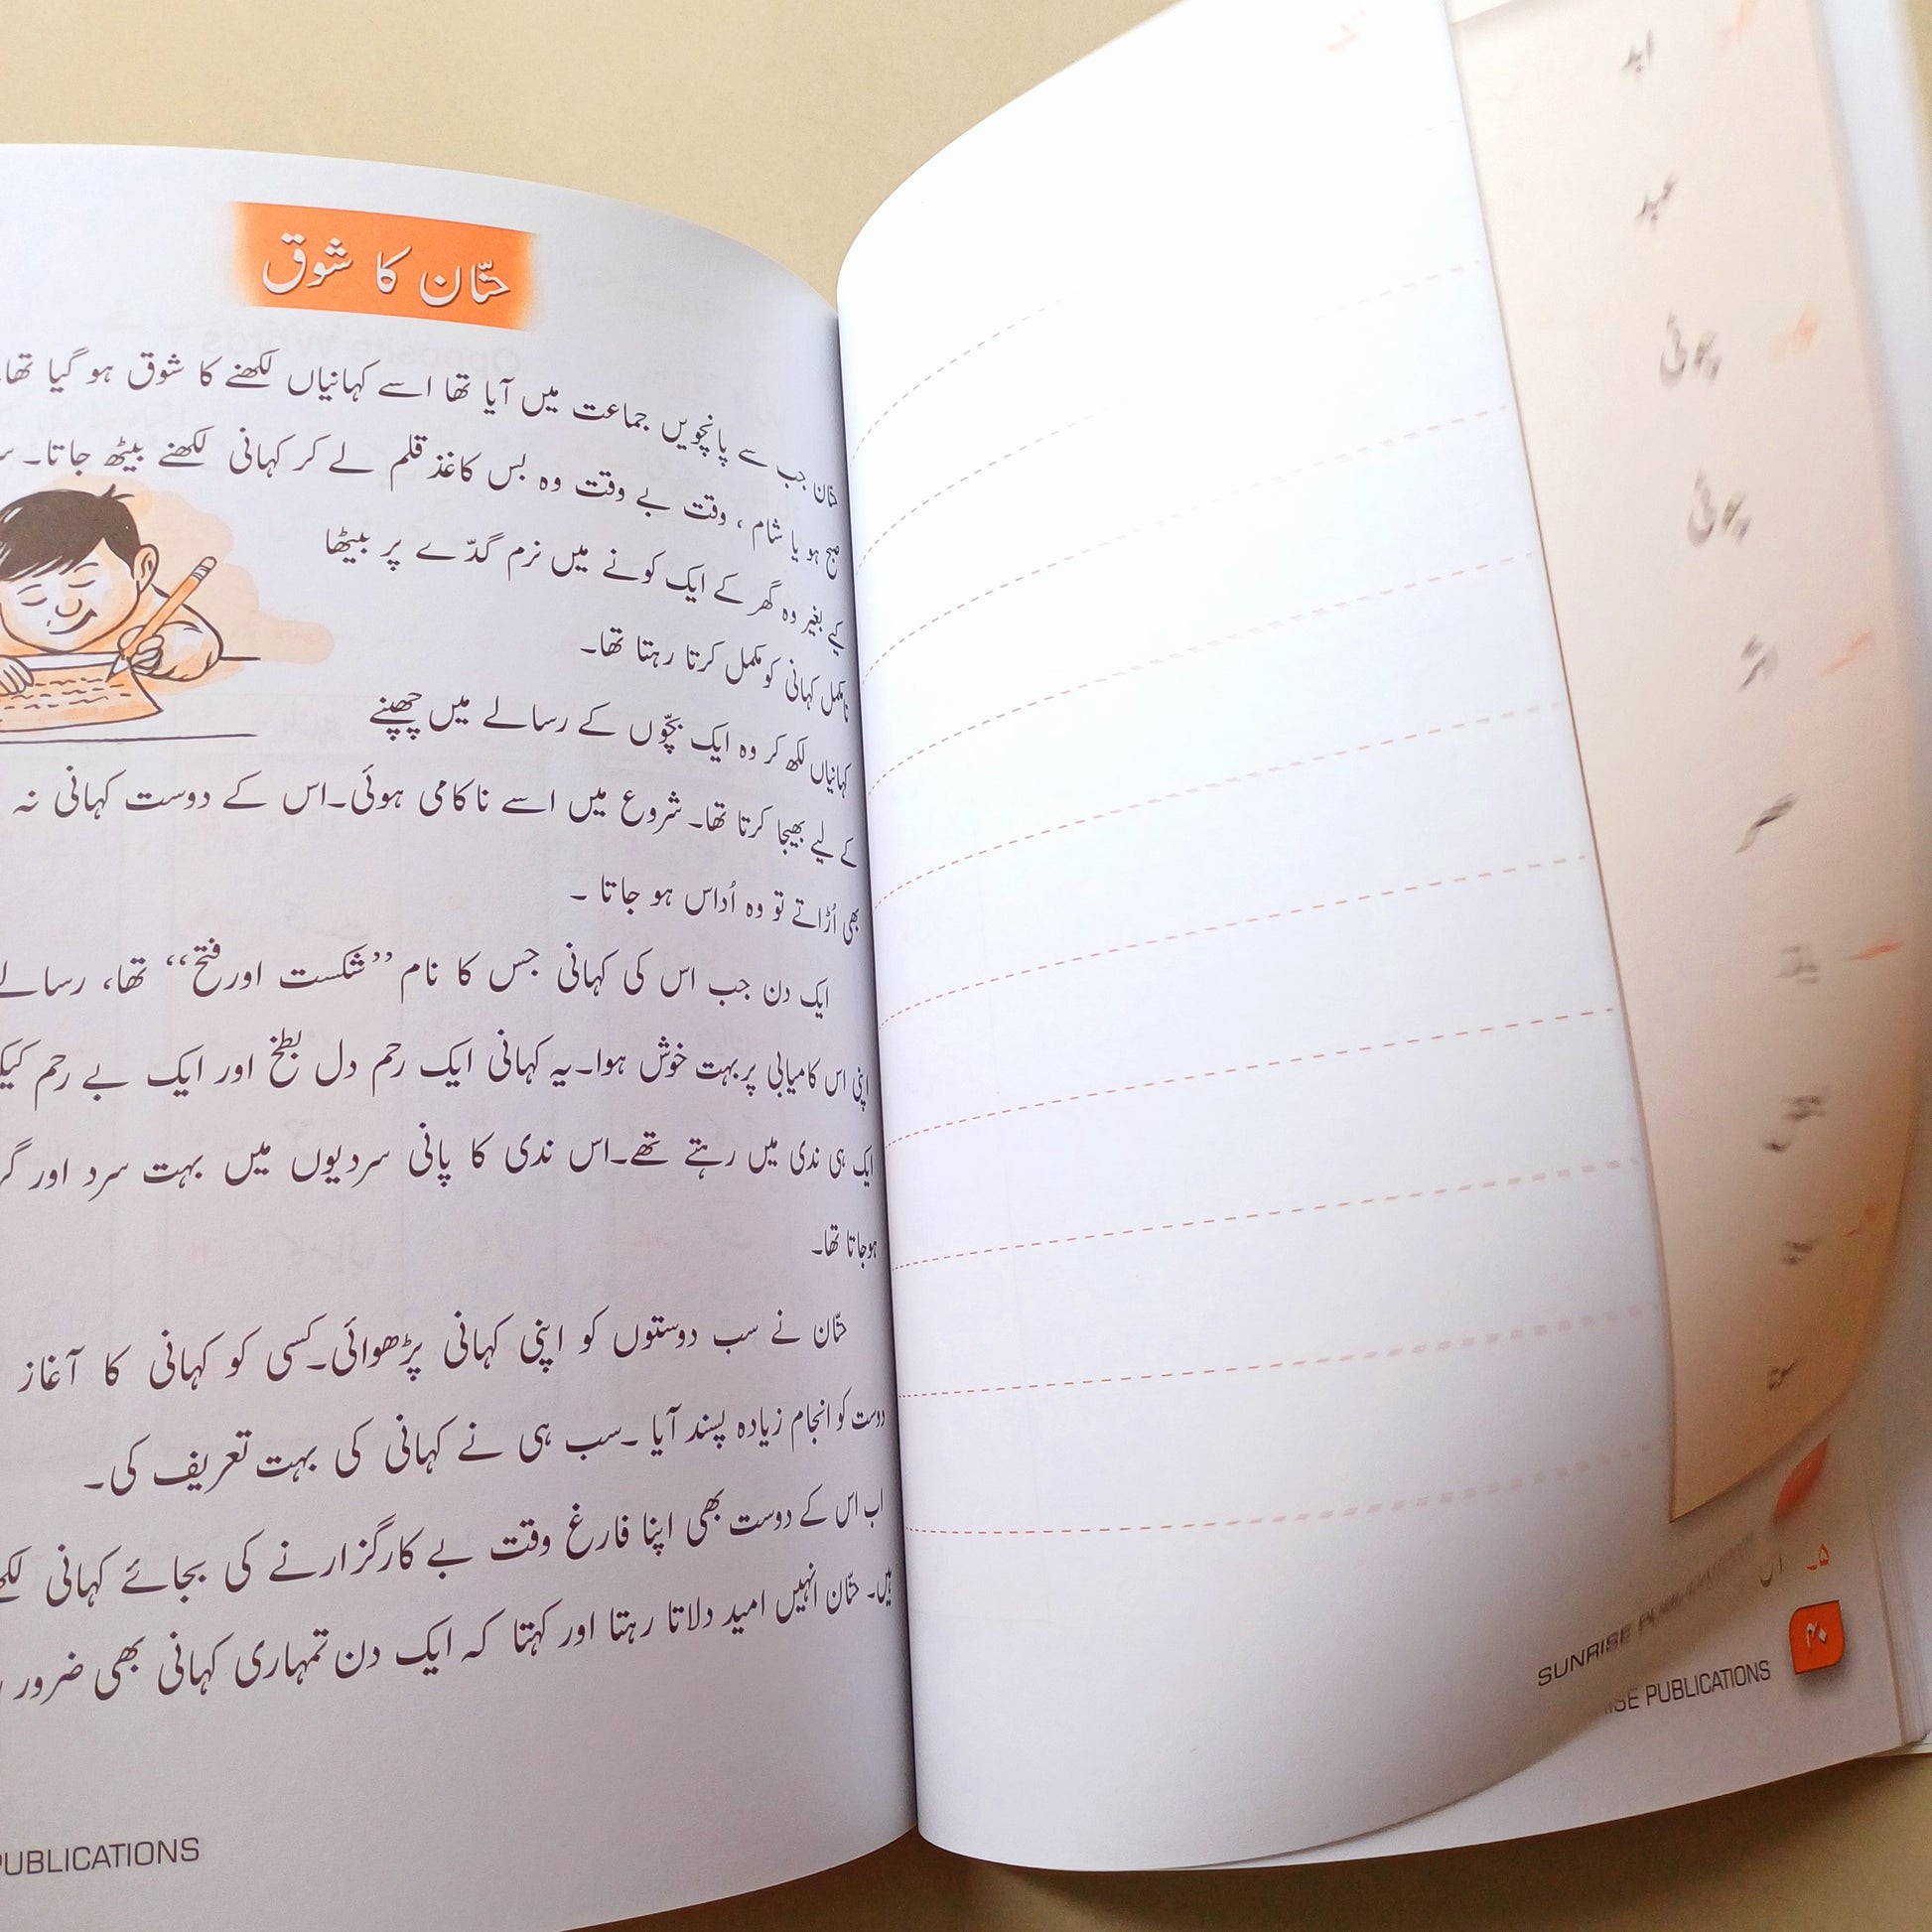 حنّان کا شوق
حنّان جب سے پانچویں جماعت میں آیا تھا اسے کہانیاں لکھنے کا شوق ہو گیا تھا
صبح ہو یا شام ، وقت بے وقت وہ بس کاغذ قلم لے کر کہانی لکھنے بیٹھ جاتا۔
کیے بغیر وہ گھر کے ایک کونے میں نرم گدّے پر بیٹھا
نامکمل کہانی کو مکمل کرتا رہتا تھا۔
کہانیاں لکھ کر وہ ایک بچّوں کے رسالے میں چھپنے
کے لیے بھیجا کرتا تھا۔ شروع میں اسے ناکامی ہوئی۔اس کے دوست کہانی نہ
بھی اُڑاتے تو وہ اُداس ہو جاتا ۔
ایک دن جب اس کی کہانی جس کا نام ”شکست اور فتح“ تھا، رسالے
اپنی اس کامیابی پر بہت خوش ہوا۔یہ کہانی ایک رحم دل بطخ اور ایک بے رحم
ایک ہی ندی میں رہتے تھے۔اس ندی کا پانی سردیوں میں بہت سرد اور
ہوجاتا تھا۔
حنّان نے سب دوستوں کو اپنی کہانی پڑھوائی۔کسی کو کہانی کا آغاز
دوست کو انجام زیادہ پسند آیا ۔سب ہی نے کہانی کی بہت تعریف کی۔
اب اس کے دوست بھی اپنا فارغ وقت بے کار گزارنے کی بجائے کہانی
ہیں۔ حنّان انہیں امید دلاتا رہتا اور کہتا کہ ایک دن تمہاری کہانی بھی ضرور
PUBLICATIONS
عید
چوٹی
۵۔
SUNRISE
۴۰
RISE PUBLICATIONS